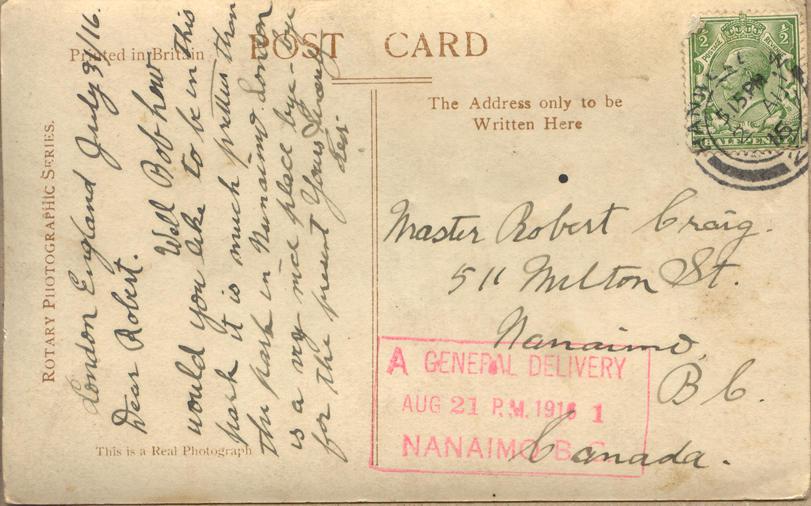 Printed in Britain
POST CARD
The Address only to be
Written Here
ROTARY PHOTOGRAPHIC SERIES.
This is a Real Photograph
London England July 31/16.
Dear Robert.
Well Bob how
would you like to be in this
park it is much pretter than
the park in Nanaimo London
is a very nice place bye-bye
for the present Yours Sincerely
Master Robert Craig.
511 Milton St.
Nanaimo,
B C.
Canada.
A GENERAL DELIVERY
AUG 21 P.M. 1916 1
NANAIMO B.C.
½ ½
HALFPENNY
5 15 PM